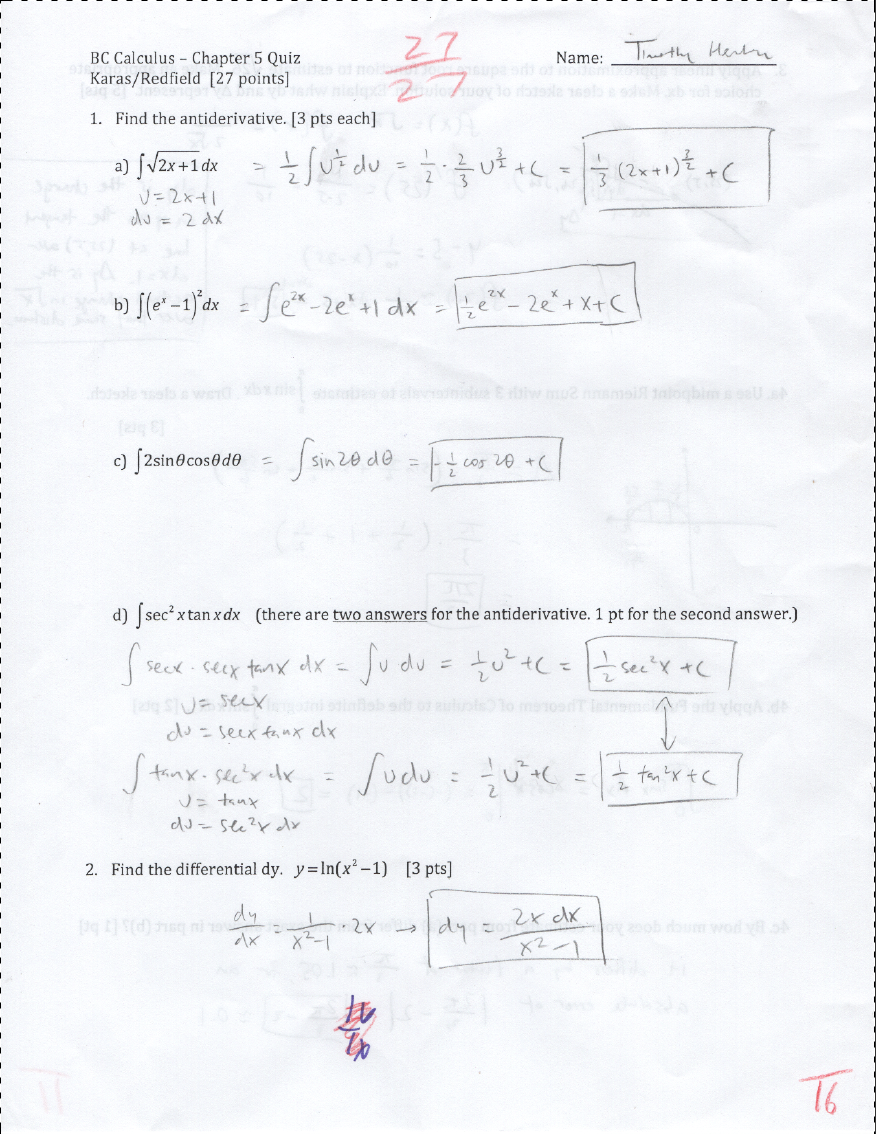 27
27
BC Calculus – Chapter 5 Quiz
Name: Timothy
Karas/Redfield [27 points]
1. Find the antiderivative. [3 pts each]
a) ∫√(2x+1) dx = 1/2 ∫ U^(1/2) du = 1/2 · 2/3 U^(3/2) + C = 1/3 (2x+1)^(3/2) + C
U = 2x+1
du = 2 dx
b) ∫(e^x – 1)² dx = ∫ e^(2x) – 2e^x + 1 dx = 1/2 e^(2x) – 2e^x + x + C
c) ∫2sinθcosθdθ = ∫ sin 2θ dθ = - 1/2 cos 2θ + C
d) ∫sec² x tan x dx (there are two answers for the antiderivative. 1 pt for the second answer.)
∫ secx · secx tanx dx = ∫ u du = 1/2 u² + C = 1/2 sec²x + C
U = secx
du = secx tanx dx
∫ tanx · sec²x dx = ∫ u du = 1/2 u² + C = 1/2 tan²x + C
U = tanx
du = sec²x dx
2. Find the differential dy. y = ln(x² – 1) [3 pts]
dy/dx = 1/(x²–1) · 2x → dy = 2x dx/(x²–1)
16